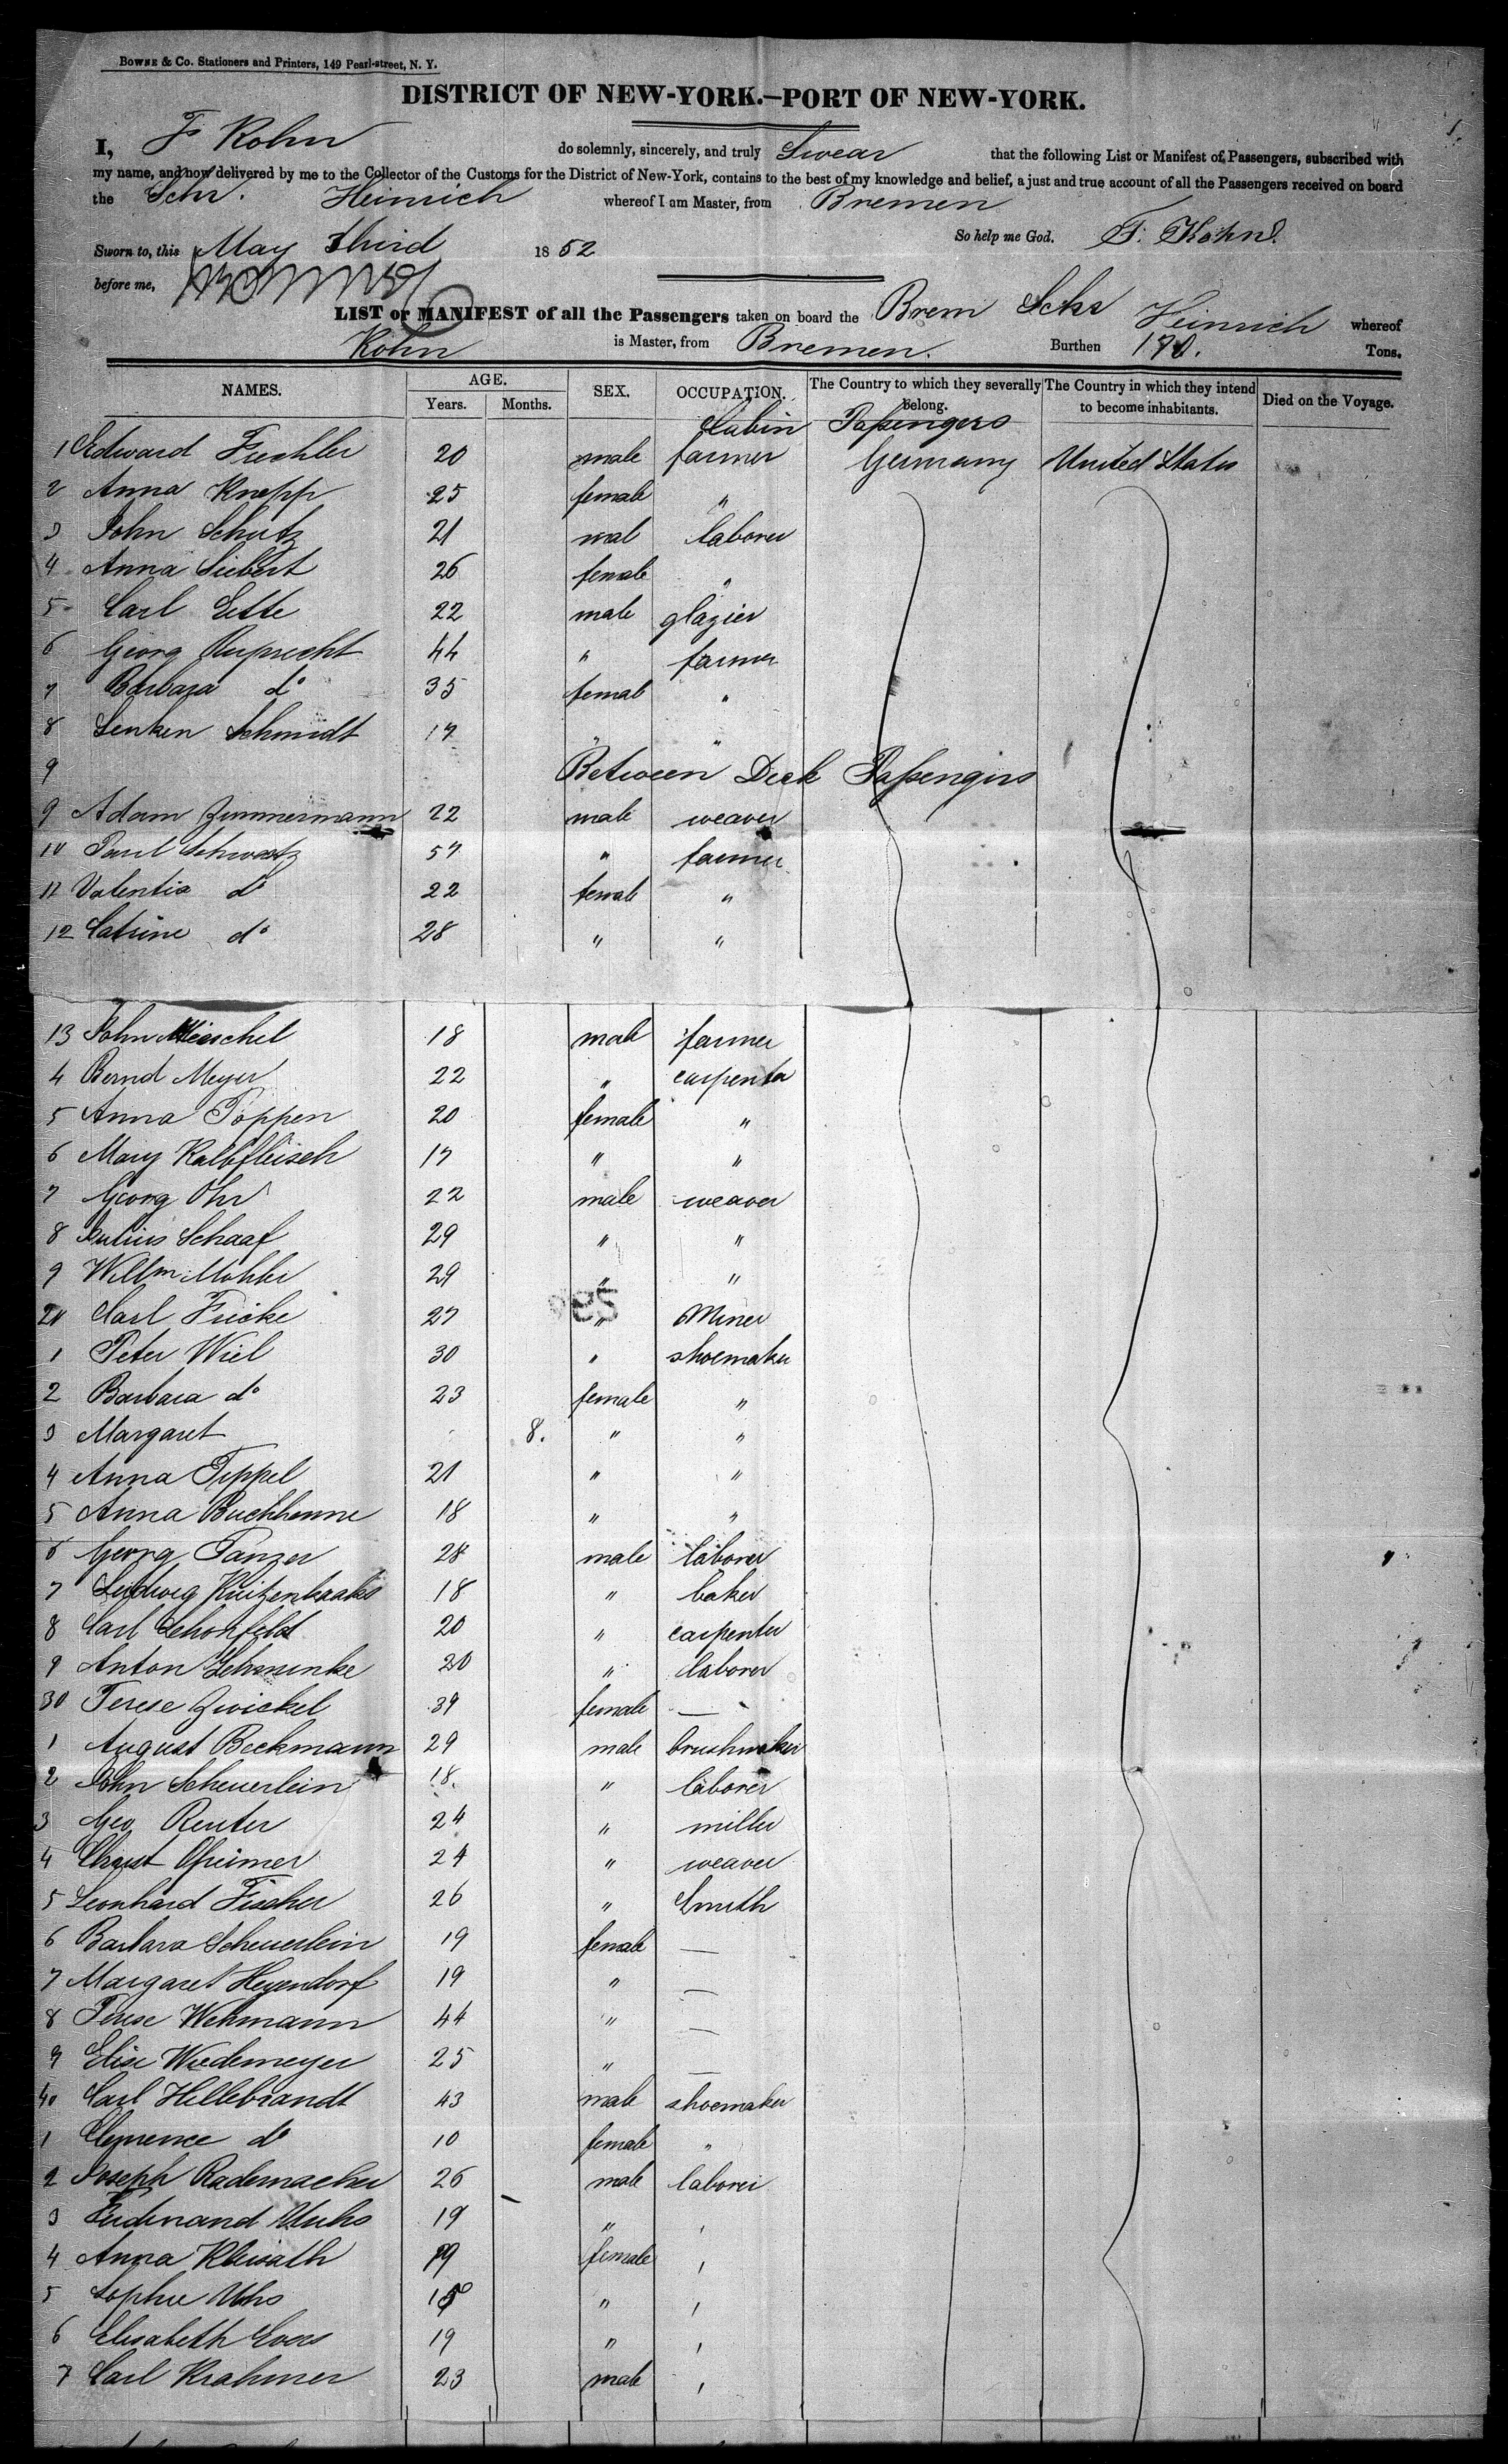 BOWNE & Co. Stationers and Printers, 149 Pearl-street, N. Y.
DISTRICT OF NEW-YORK.—PORT OF NEW-YORK.
I, F Kohn do solemnly, sincerely, and truly Swear that the following List or Manifest of Passengers, subscribed with
my name, and now delivered by me to the Collector of the Customs for the District of New-York, contains to the best of my knowledge and belief, a just and true account of all the Passengers received on board
the Schr. Heinrich whereof I am Master, from Bremen
Sworn to, this May third 1852 So help me God. F. Kohn
before me,
LIST or MANIFEST of all the Passengers taken on board the Brem Schr Heinrich whereof
Kohn is Master, from Bremen. Burthen Tons.
NAMES. AGE. SEX. OCCUPATION. The Country to which they severally belong. The Country in which they intend to become inhabitants. Died on the Voyage.
Years. Months.
Cabin Passengers
1 Edward 20 male farmer Germany United States
2 Anna Knapp 25 female "
3 John Schutz 21 mal laborer
4 Anna Siebert 26 female "
5 Carl 22 male glazier
6 Georg Ruprecht 44 " farmer
7 Barbara do 35 femal "
8 Schmidt 17 " "
9 Between Deck Passengers
9 Adam Zimmermann 22 male weaver
10 Paul Schwartz 57 " farmer
11 Valentia do 22 female "
12 Catrine do 28 " "
13 John 18 male farmer
4 Bernd Meyer 22 " carpenter
5 Anna Poppen 20 female "
6 Mary Kalbfleisch 17 " "
7 Georg Ohr 22 male weaver
8 Julius Schaaf 29 " "
9 Willm 29 " "
20 Carl Fricke 27 " Miner
1 Peter Wiel 30 " shoemaker
2 Barbara do 23 female "
3 Margaret 8. " "
4 Anna Tippel 21 " "
5 Anna 18 " "
6 Georg Tanzer 28 male laborer
7 Ludwig 18 " baker
8 Carl Schonfeld 20 " carpenter
9 Anton Schminke 20 " laborer
30 Terese Zwickel 39 female —
1 August Beckmann 29 male brushmaker
2 John Scheuerlein 18. " laborer
3 Geo Reuter 24 " miller
4 Christ 24 " weaver
5 Leonhard Fischer 26 " Smith
6 Barbara Scheuerlein 19 female —
7 Margaret Heyendorf 19 " —
8 Terese Wehmann 44 " —
9 Elise Wiedemeyer 25 " —
40 Carl Hillebrandt 43 male shoemaker
1 Clemence do 10 female "
2 Joseph Rademacher 26 male laborer
3 Ferdinand 19 " '
4 Anna 19 female '
5 Sophie Uhs " '
6 Elisabeth Evers 19 " '
7 Carl Krahmer 23 male '